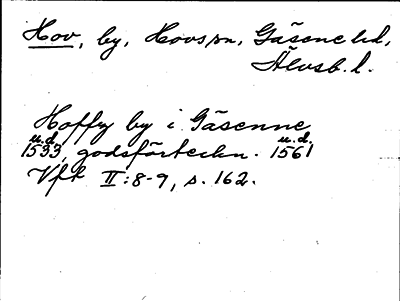 Hov, by, Hovs sn, Gäsene hd,
Älvsb. l.
Hoffz by i Gäsenne
u.d. u.d.
1533, godsförteckn. 1561
Vft II:8-9, s. 162.